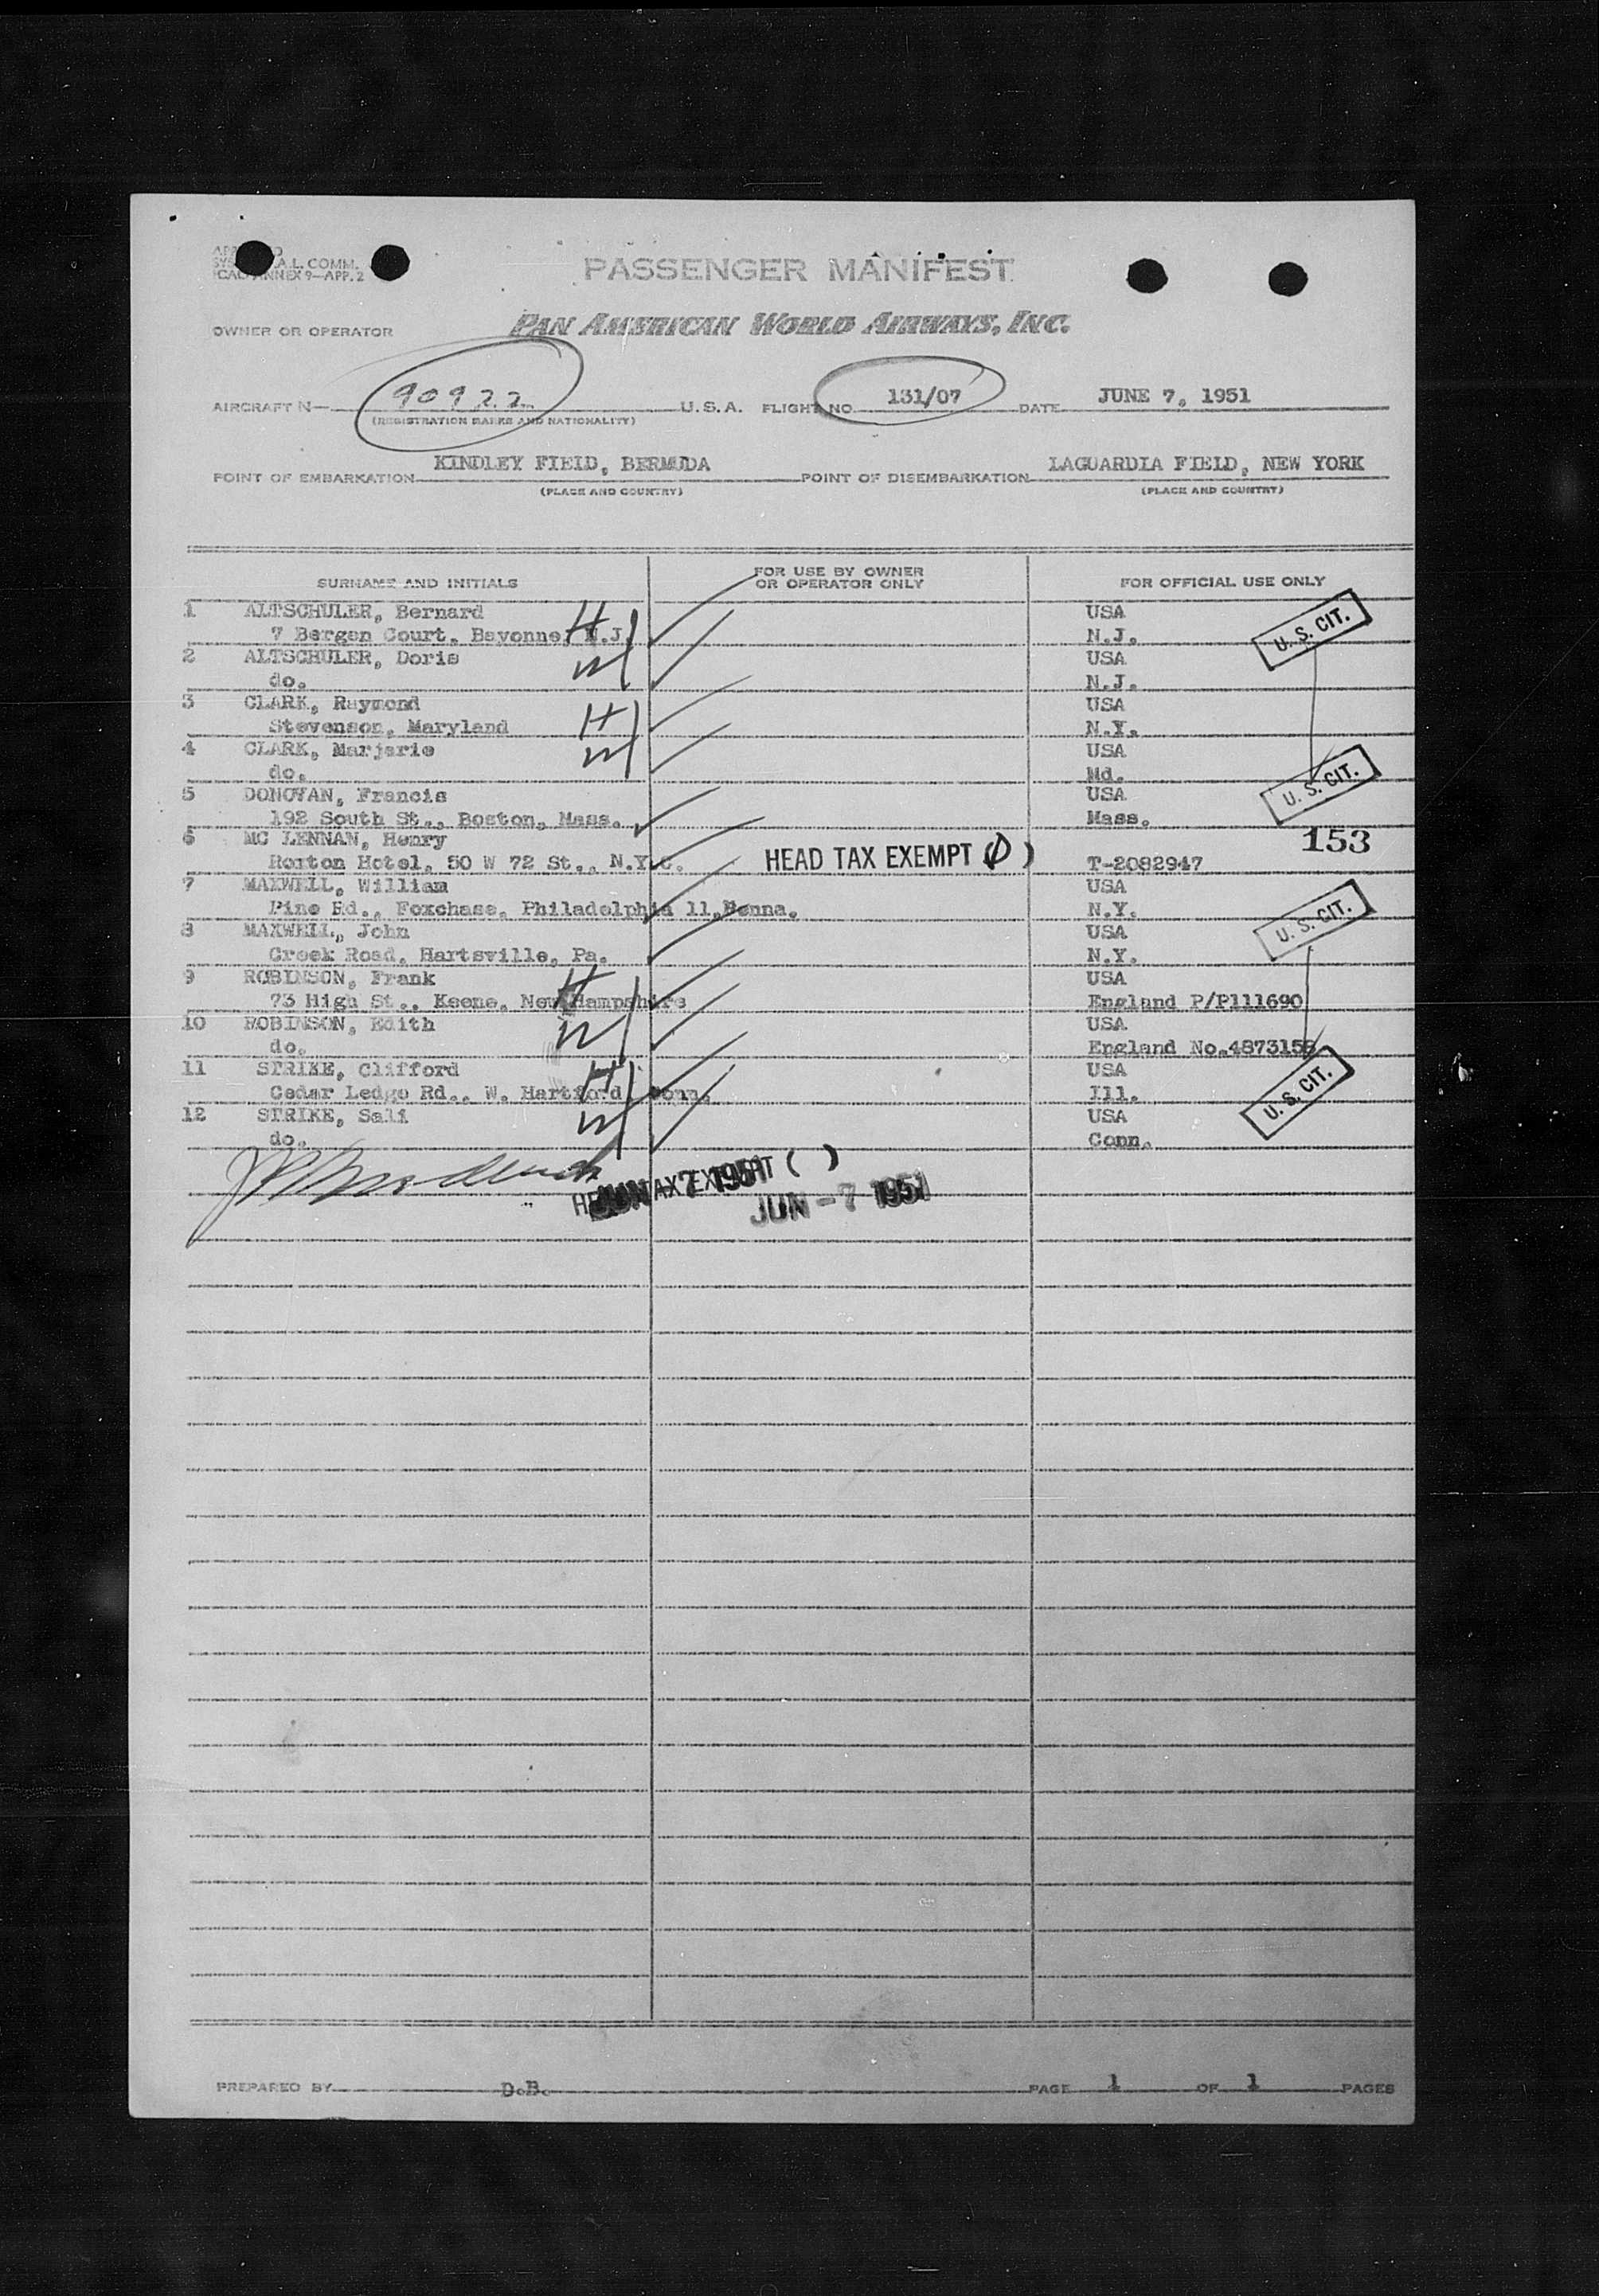 A.L. COMM.
ICAO ANNEX 9—APP. 2
PASSENGER MANIFEST
OWNER OR OPERATOR PAN AMERICAN WORLD AIRWAYS, INC.
AIRCRAFT N— 90922 U.S.A. FLIGHT NO. 131/07 DATE JUNE 7, 1951
(REGISTRATION MARKS AND NATIONALITY)
POINT OF EMBARKATION KINDLEY FIELD, BERMUDA POINT OF DISEMBARKATION LAGUARDIA FIELD, NEW YORK
(PLACE AND COUNTRY) (PLACE AND COUNTRY)
SURNAME AND INITIALS FOR USE BY OWNER OR OPERATOR ONLY FOR OFFICIAL USE ONLY
1 ALTSCHULER, Bernard H USA U. S. CIT.
7 Bergen Court, Bayonne, N.J. N.J.
2 ALTSCHULER, Doris W USA
do. N.J.
3 CLARK, Raymond H USA
Stevenson, Maryland N.Y.
4 CLARK, Marjorie W USA
do. Md. U. S. CIT.
5 DONOVAN, Francis USA
192 South St., Boston, Mass. Mass.
6 MC LENNAN, Henry 153
Roxton Hotel, 50 W 72 St., N.Y.C. HEAD TAX EXEMPT ( ) T-2082947
7 MAXWELL, William USA
Pine Rd., Foxchase, Philadelphia 11, Penna. N.Y. U. S. CIT.
8 MAXWELL, John USA
Creek Road, Hartsville, Pa. N.Y.
9 ROBINSON, Frank H USA
73 High St., Keene, New Hampshire England P/P111690
10 ROBINSON, Edith W USA
do. England No.4873158
11 STRIKE, Clifford H USA
Cedar Ledge Rd., W. Hartford, Conn. Ill. U. S. CIT.
12 STRIKE, Sali W USA
do. Conn.
HEAD TAX EXEMPT ( )
JUN -7 1951
JUN -7 1951
PREPARED BY D.B. PAGE 1 OF 1 PAGES